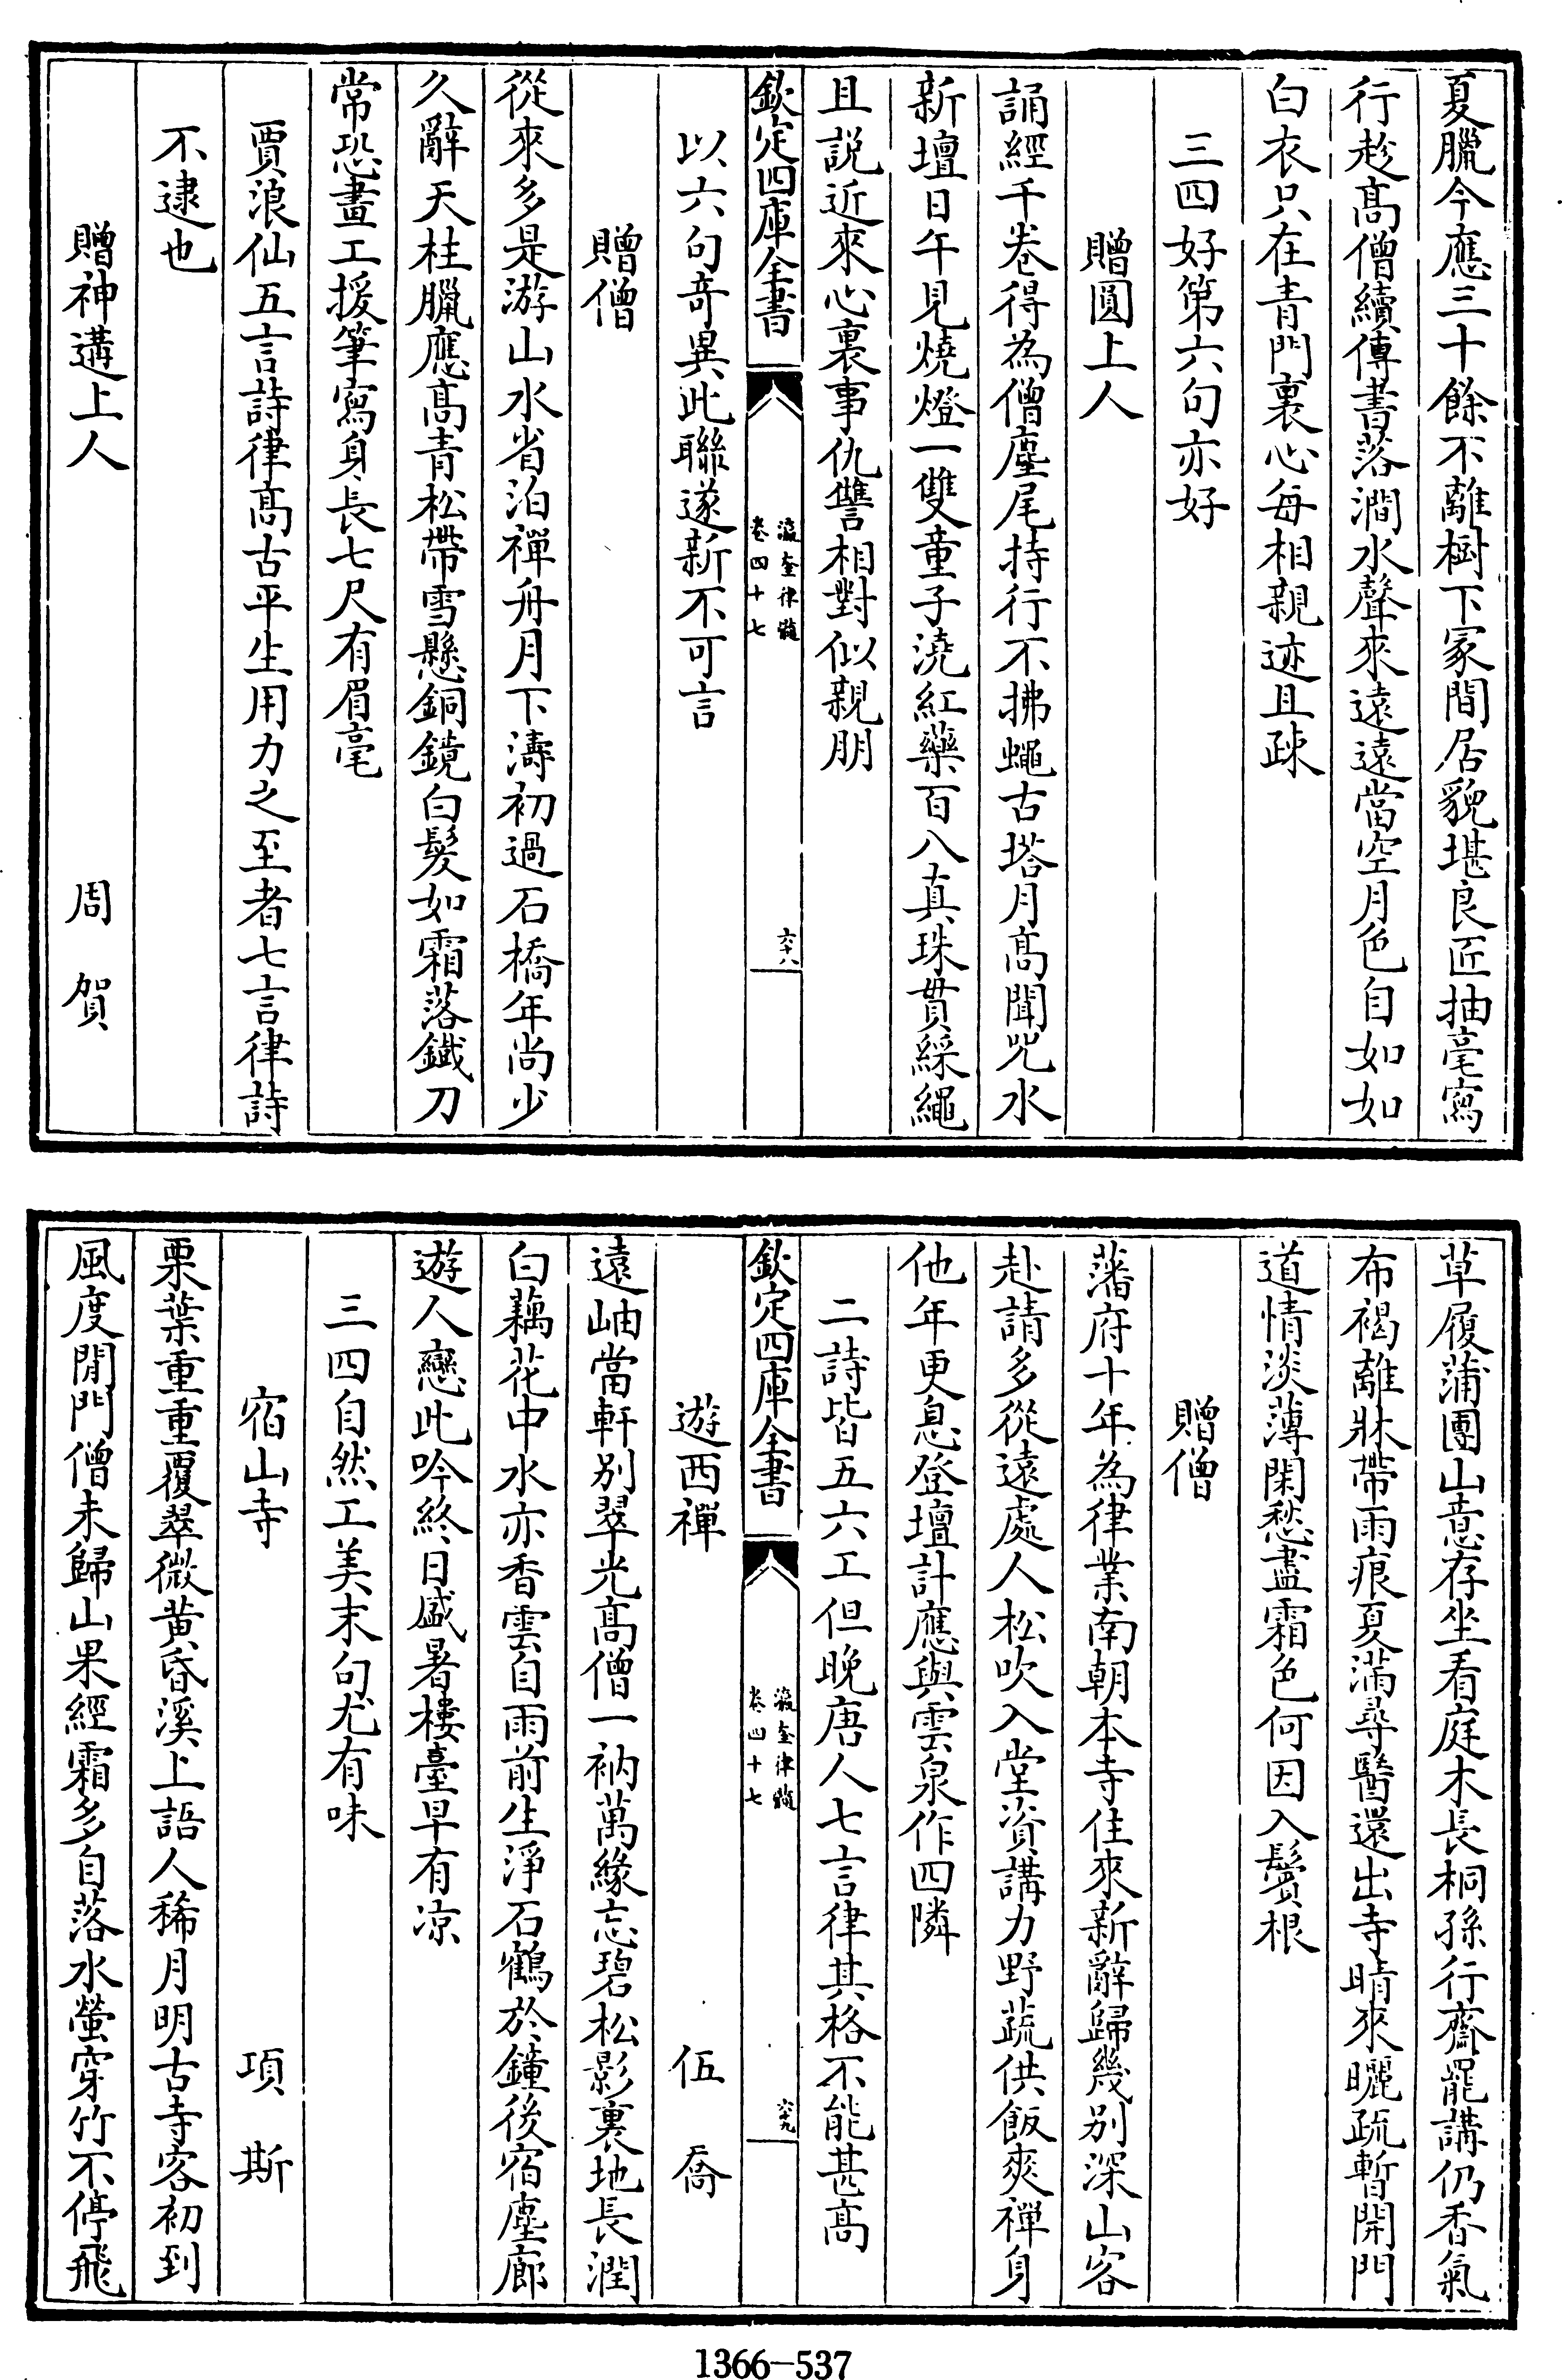 夏臘今應三十餘不離樹下冢間居貌堪良匠抽毫寫
行趁髙僧續傳書落澗水聲來遠遠當空月色自如如
白衣只在青門裏心每相親迹且疎
三四好第六句亦好
贈圓上人
誦經千卷得為僧麈尾持行不拂蠅古塔月髙聞咒水
新壇日午見燒燈一雙童子澆紅藥百八真珠貫綵繩
且説近來心裏事仇讐相對似親朋
欽定四庫全書
瀛奎律髓
卷四十七
六十八
以六句竒異此聯遂新不可言
贈僧
從來多是游山水省泊禪舟月下濤初過石橋年尚少
久辭天柱臘應髙青松帶雪懸銅鏡白髮如霜落鐵刀
常恐畫工援筆寫身長七尺有眉毫
賈浪仙五言詩律髙古平生用力之至者七言律詩
不逮也
贈神遘上人
周賀
草履蒲團山意存坐看庭木長桐孫行齋罷講仍香氣
布褐離牀帶雨痕夏滿尋醫還出寺晴來曬疏暫開門
道情淡薄閑愁盡霜色何因入鬢根
贈僧
藩府十年為律業南朝本寺住來新辭歸幾别深山客
赴請多從遠處人松吹入堂資講力野蔬供飯爽禪身
他年更息登壇計應與雲泉作四隣
二詩皆五六工但晚唐人七言律其格不能甚髙
欽定四庫全書
瀛奎律髓
卷四十七
六十九
遊西禪
伍喬
遠岫當軒别翠光髙僧一衲萬緣忘碧松影裏地長潤
白藕花中水亦香雲自雨前生淨石鶴於鐘後宿塵廊
遊人戀此吟終日盛暑樓臺早有凉
三四自然工美末句尤有味
宿山寺
項斯
栗葉重重覆翠微黄昏溪上語人稀月明古寺客初到
風度閒門僧未歸山果經霜多自落水螢穿竹不停飛
1366-537